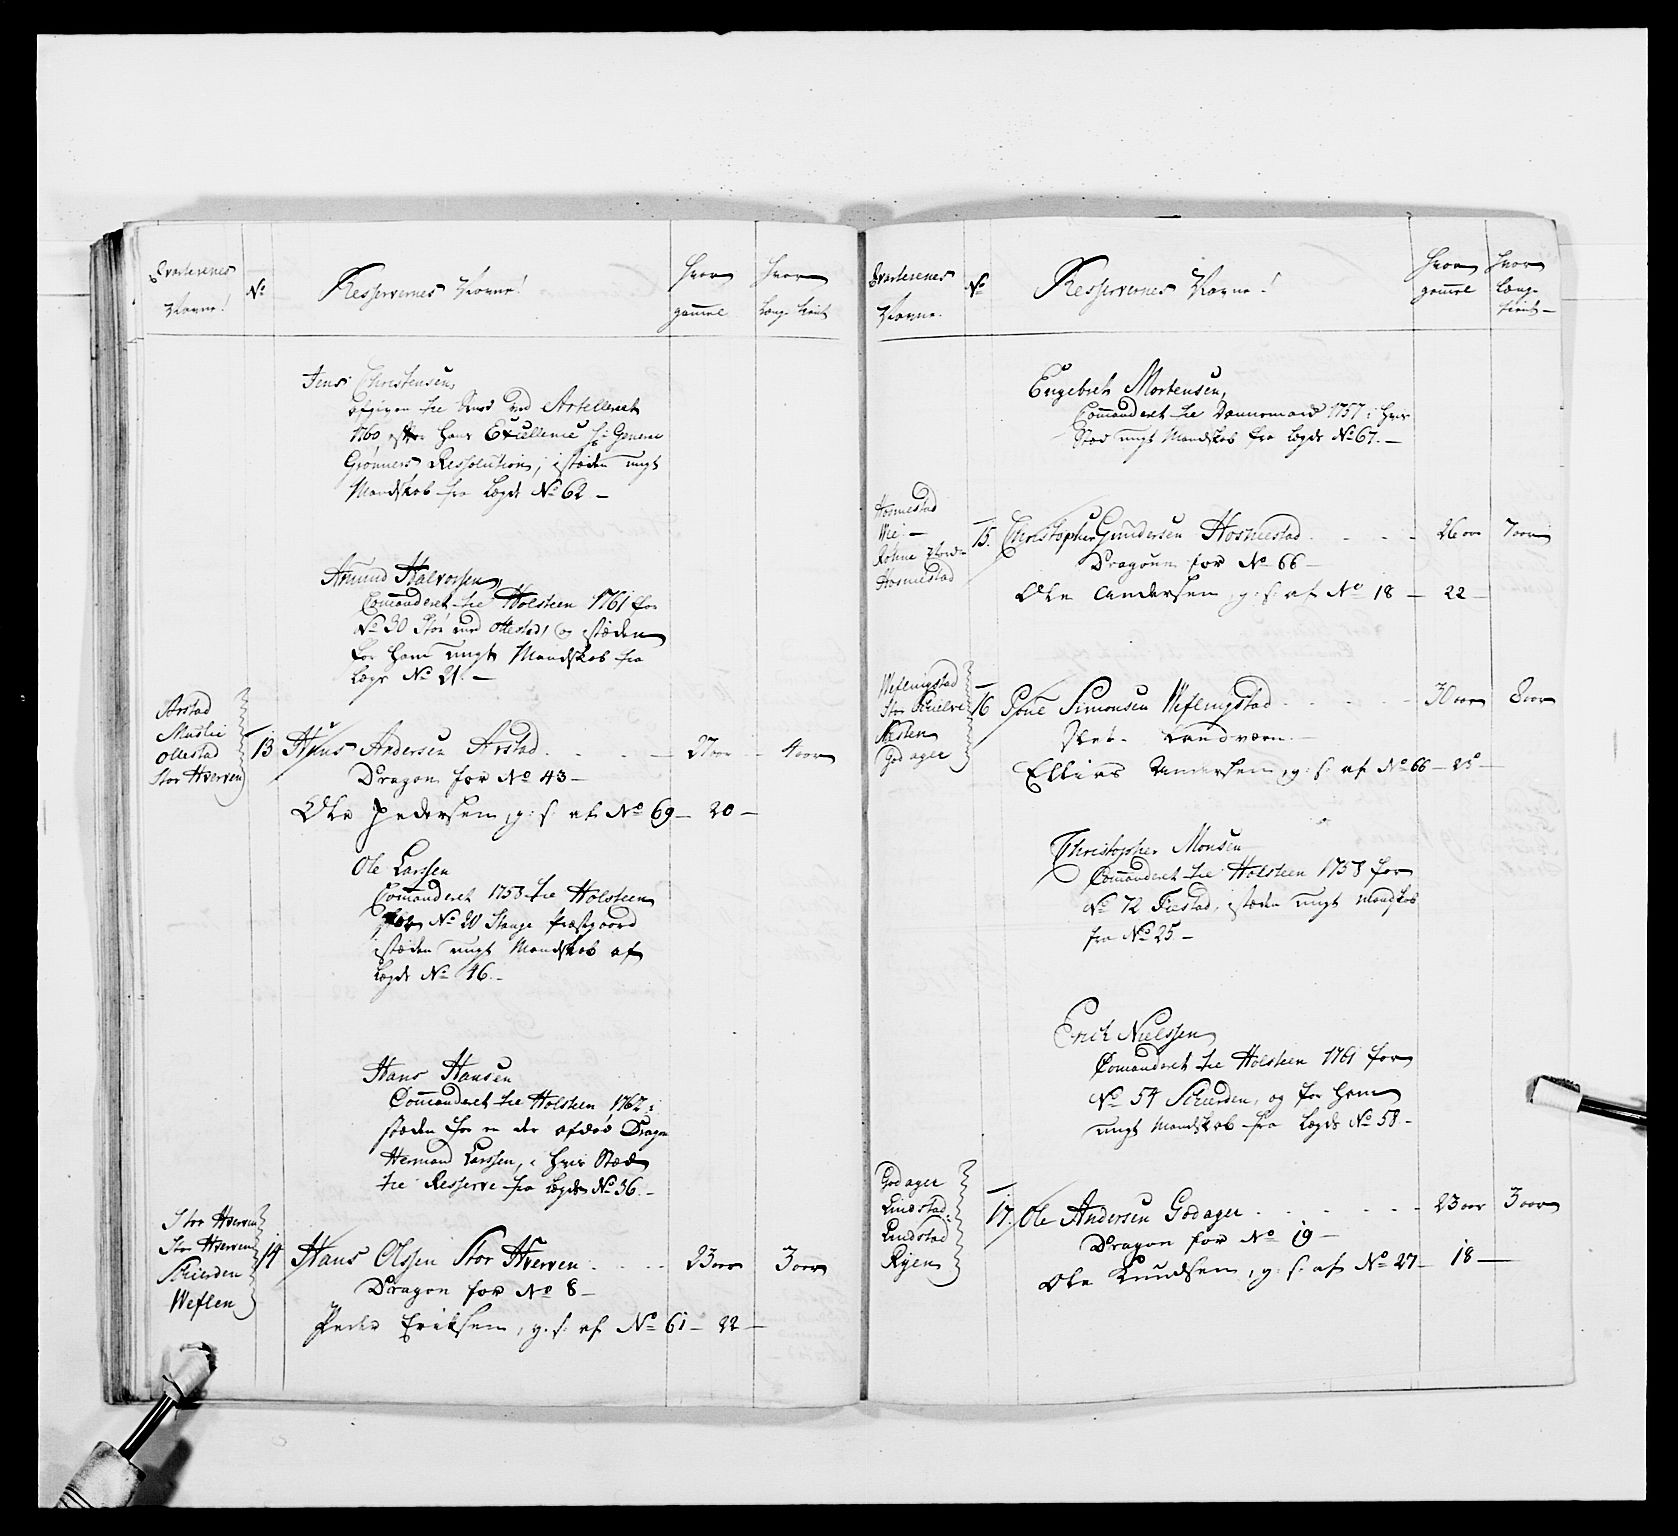 Qvarterenes Navne! No Resservernes Navne! hvor gammel hvor Længe tient
Jens Christensen,
afgiven til
1760 efter Hans Excellence Hr General
Grønners Ressolution, i stæden ungt
Mandskab fra Lægd No 62 -
Amund Halvorssen,
Comanderet til Holsteen 1761 for
No 30 Stor Ottestad, og i stæden
for ham ungt Mandskab fra
Lægd No 21. -
Arstad
Muslie
Ottestad
Stor Hverven
13 Hans Andersen Arstad 27 aar - 4 aar
Dragon for No 43 -
Ole Pedersen, g: s: af No 69 - 20 -
Ole Larssen
Comanderet 1758 til Holsteen
for No 20 Stange Præstgaard
i stæden ungt Mandskab af
Lægd No 46. -
Hans Hansen
Commanderet til Holsteen 1762 i
stæden for en der afdød Dragon
Hermand Larssen, i hvis Stæd
til Resserve fra Lægd No 36. -
Stor Hverven
Stor Hverven
Schierden
Weflen
14 Hans Olssen Stor Hverven 23 aar 3 aar
Dragon for No 8 -
Peder Eriksen, g: s: af No 61 - 22 -
Qvarterenes Navne. No Resservernes Navne! hvor gammel hvor Længe tient -
Engebret Mortensen,
Comanderet til Dannemark 1757 i hvis
Stæd ungt Mandskab fra Lægd No 67. -
Hosmestad
Wei -
Hosmestad
15. Christopher Gundersen Hosmestad 26 aar 7 aar
Dragoun for No 66 -
Ole Andersen, g: s: af No 18 - 22 -
Weflingstad
Stor Schielve
Næsten
Godager
16 Poul Simonsen Weflingstad 30 aar 8 aar
Landværn. -
Ellias Andersen, g: s: af No 66 - 25 -
Christopher Monsen
Comanderet til Holsteen 1758 for
No 72 Fiestad, i stæden ungt Mandskab
fra No 25 -
Erich Nielssen
Comanderet til Holsteen 1761 for
No 54 Schierden, og for ham
ungt Mandskab fra Lægd No 58. -
Godager
Lindstad
Lindstad
Rÿen
17. Ole Andersen Godager 23 aar 3 aar
Dragon for No 19 -
Ole Knudsen, g: s: af No 27 - 18 -